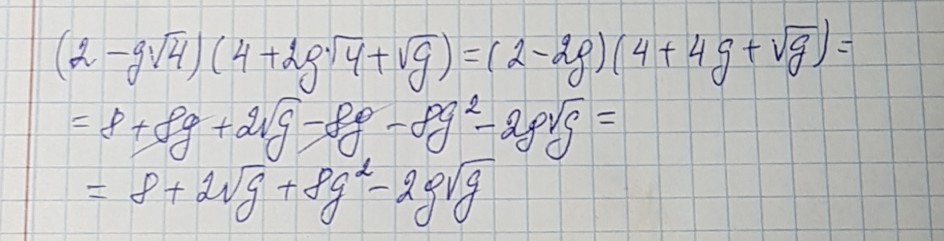 (2 - g√4)(4 + 2g√4 + √g) = (2 - 2g)(4 + 4g + √g) =
= 8 + 8g + 2√g - 8g - 8g² - 2g√g =
= 8 + 2√g + 8g² - 2g√g